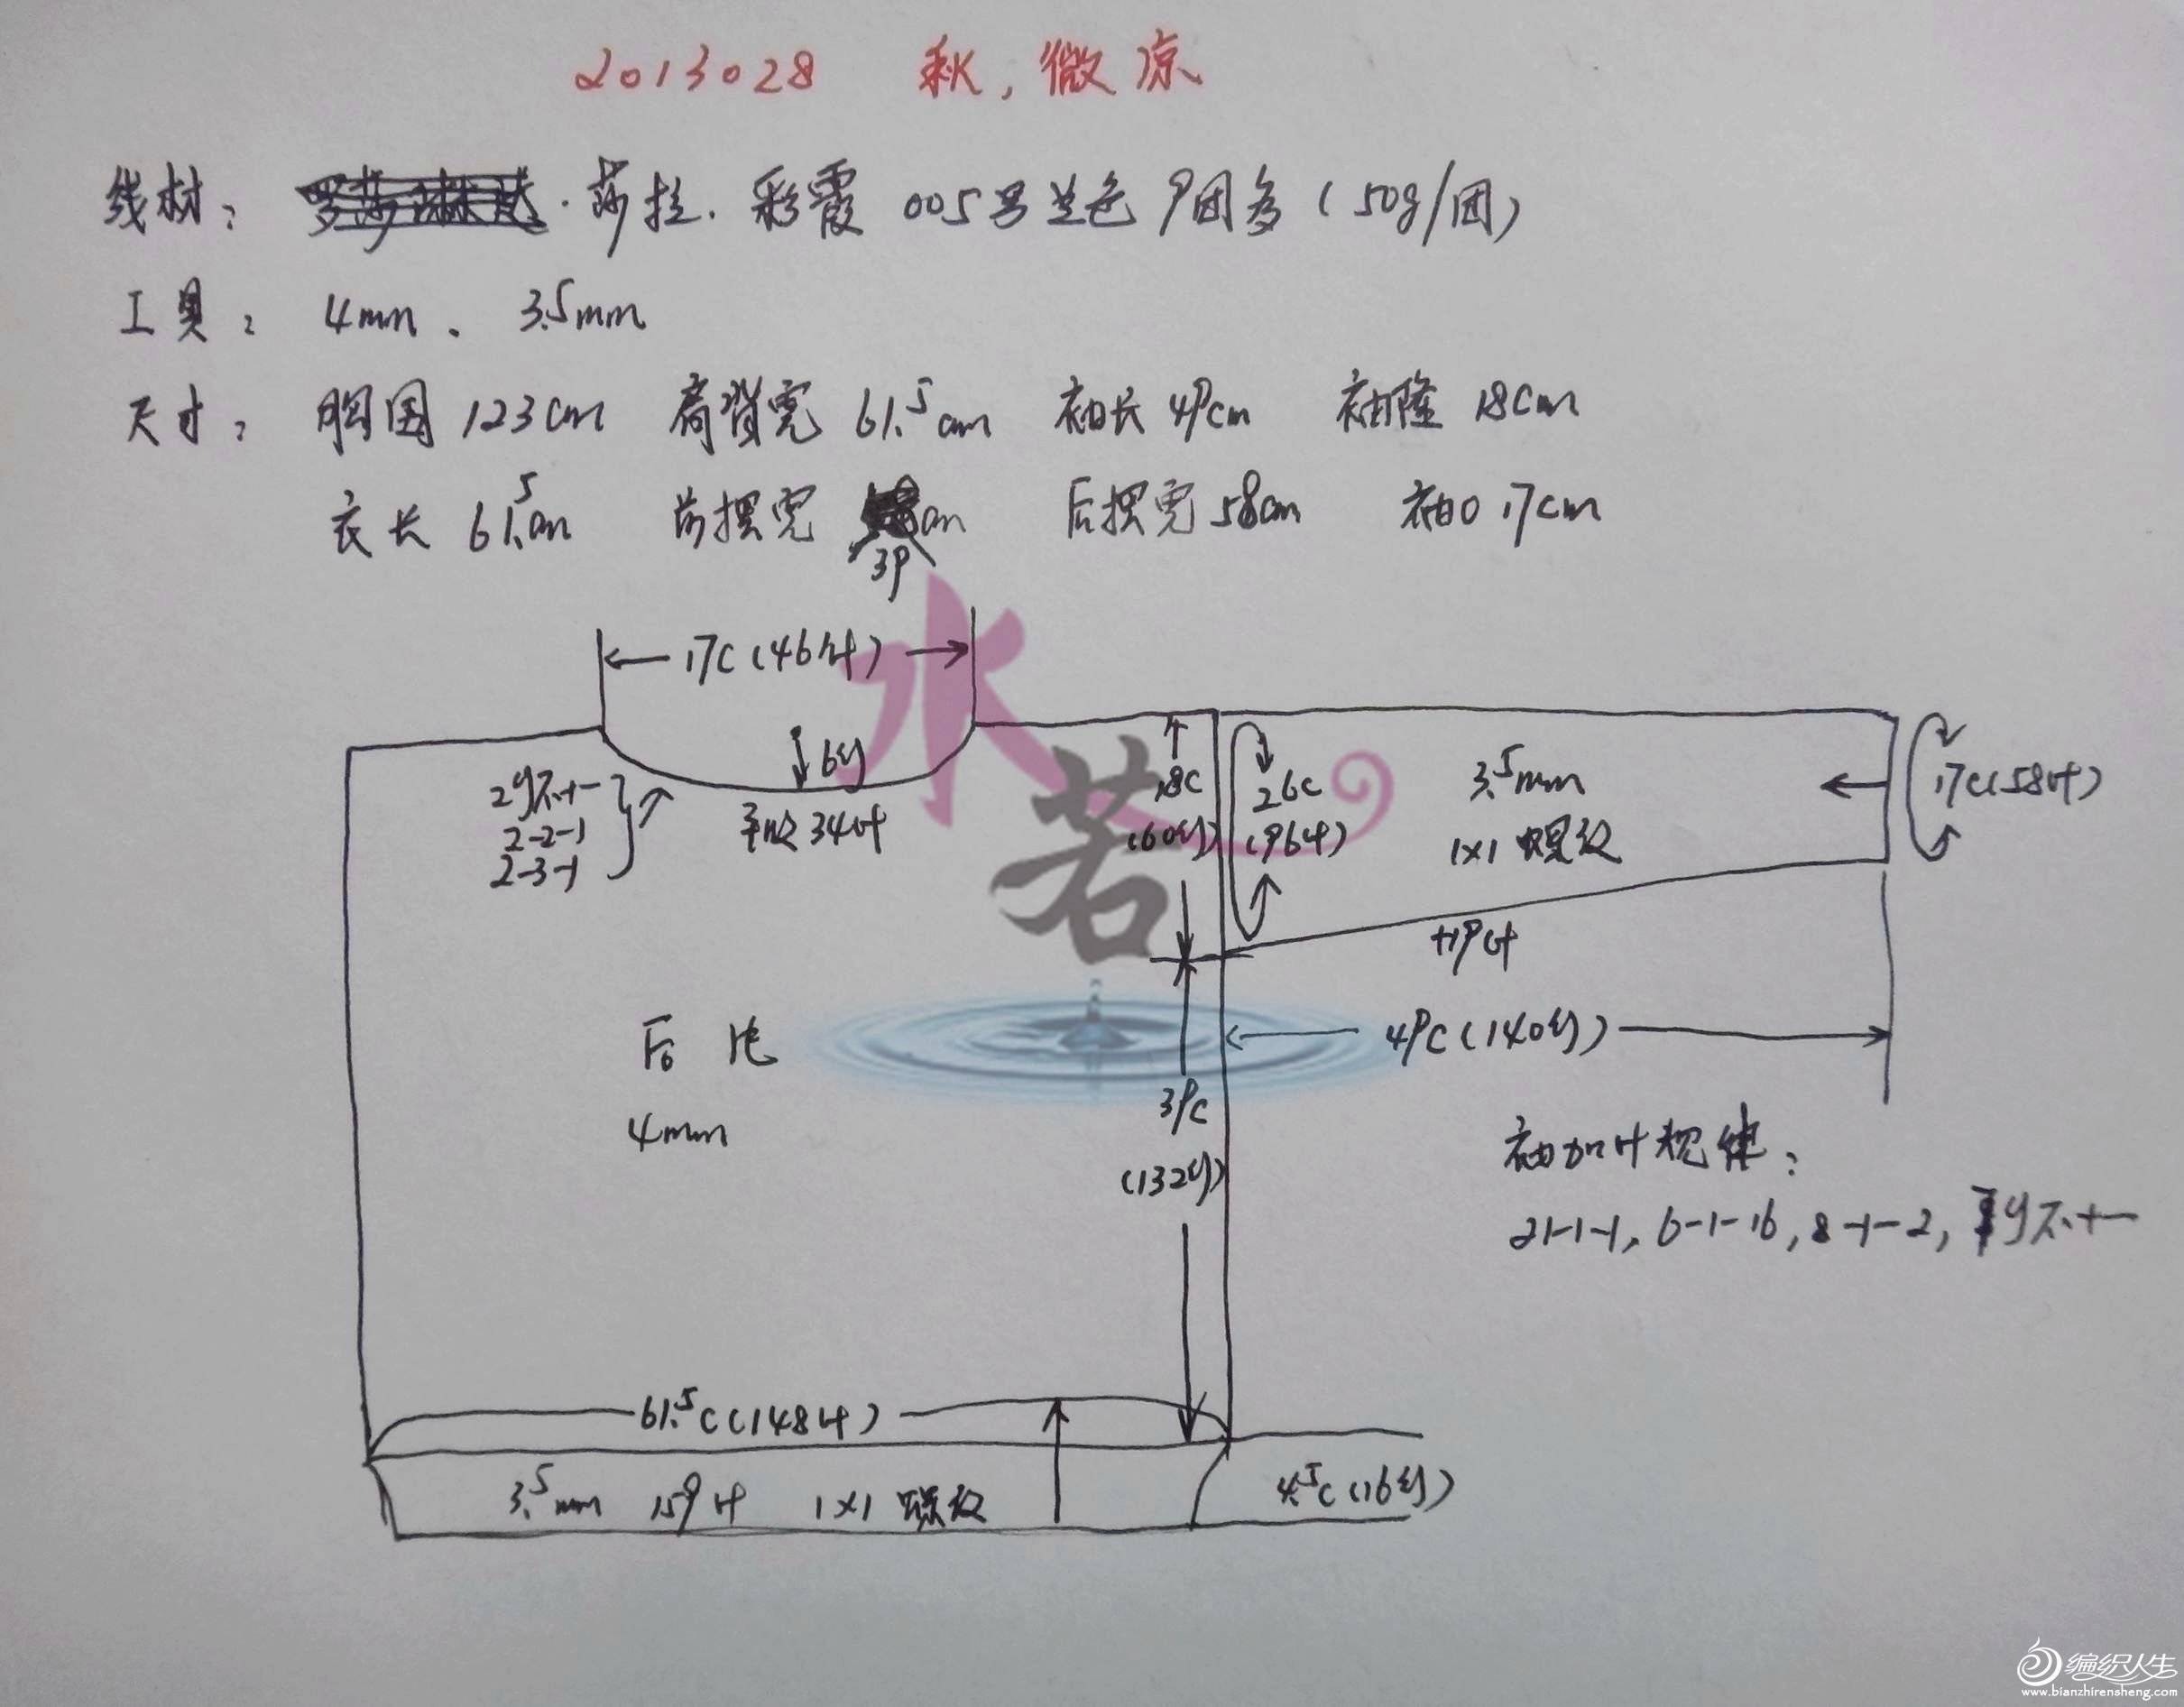 2013028 秋,微凉
线材: 莎拉.彩霞 005号兰色 9团多 (50g/团)
工具: 4mm、3.5mm
尺寸: 胸围 123cm 肩背宽 61.5cm 袖长 49cm 袖隆 18cm
衣长 61.5cm 前摆宽 39cm 后摆宽 58cm 袖口 17cm
17C(46针)
6行
平收34针
2行不+-
2-2-1
2-3-1
18C
(60行)
26C
(96针)
3.5mm
1×1 螺纹
17C(58针)
+19针
49C(140行)
后片
4mm
39C
(132行)
袖加针规律:
21-1-1, 6-1-16, 8-1-2, 行不+-
61.5C(148针)
3.5mm 159针 1×1 螺纹
4.5C(16行)
水若
编织人生
www.bianzhirensheng.com